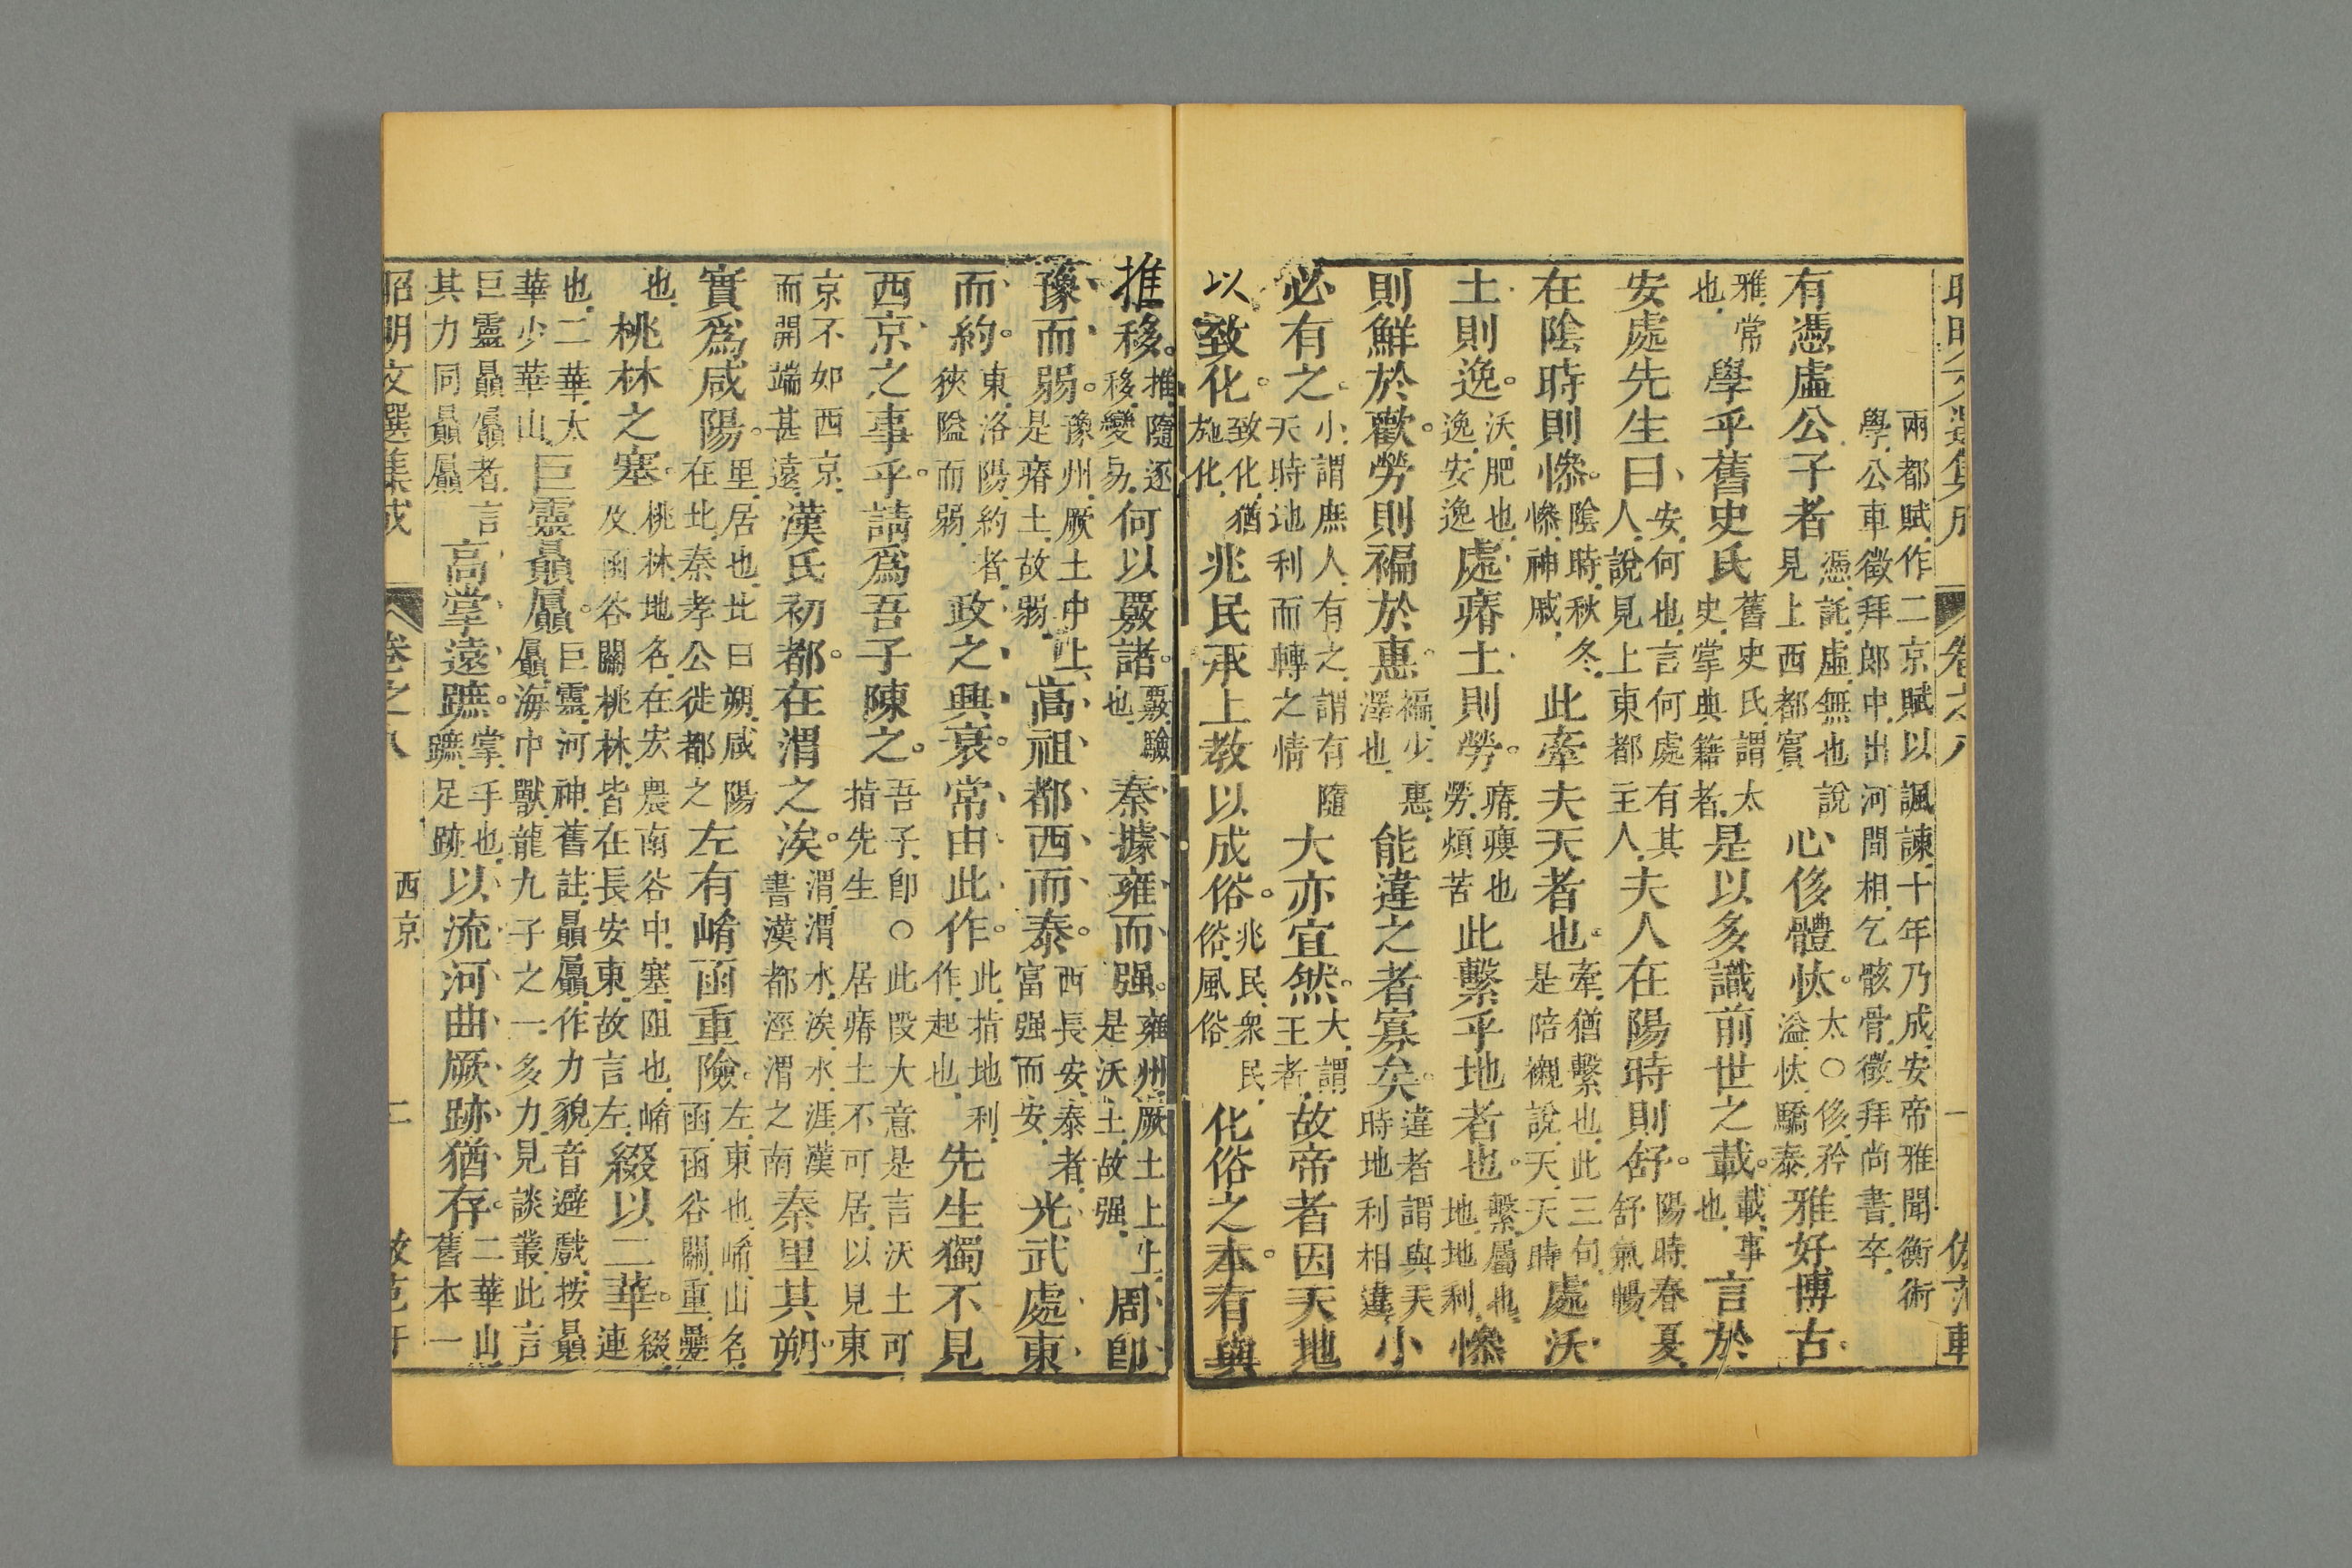 兩都賦作二京賦以諷諫十年乃成安帝雅聞衡術
學公車徵拜郎中出河間相乞骸骨徵拜尚書卒
有憑虛公子者憑託虛無也說見上西都賓心侈體忲太○侈矜溢忲驕泰雅好博古
雅常也學乎舊史氏舊史氏謂太史掌典籍者是以多識前世之載載事也言於
安處先生曰安何也言何處有其人說見上東都主人夫人在陽時則舒陽時春夏舒氣暢
在陰時則慘陰時秋冬慘神戚此牽夫天者也牽猶繫也此三句是陪襯說天天時處沃
土則逸沃肥也逸安逸處瘠土則勞瘠瘦也勞煩苦此繫乎地者也繫屬也地地利慘
則鮮於歡勞則褊於惠褊少惠澤也能違之者寡矣違者謂與天時地利相違小
必有之小謂庶人有之謂有隨天時地利而轉之情大亦宜然大謂王者故帝者因天地
以致化致化猶施化兆民承上教以成俗兆民衆民俗風俗化俗之本有與
推移推隨逐移變易何以覈諸覈驗也秦據雍而强雍州厥土上上是沃土故强周即
豫而弱豫州厥土中上是瘠土故弱高祖都西而泰西長安泰者富强而安光武處東
而約東洛陽約者狹隘而弱政之興衰常由此作此指地利作起也先生獨不見
西京之事乎請爲吾子陳之吾子即指先生○此段大意是言沃土可居瘠土不可居以見東
京不如西京而開端甚遠漢氏初都在渭之涘渭渭水涘水涯漢書漢都涇渭之南秦里其朔
實爲咸陽里居也北曰朔咸陽在北秦孝公徙都之左有崤函重險左東也崤山名函函谷關重疊
也桃林之塞桃林地名在宏農南谷中塞阻也崤及函谷關桃林皆在長安東故言左綴以二華綴連
也二華太華少華山巨靈贔屭巨靈河神舊註贔屭作力貌音避戲按贔屭海中獸龍九子之一多力見談叢此言
巨靈贔屭者言其力同贔屭高掌遠蹠掌手也蹠足跡以流河曲厥跡猶存二華山舊本一
昭明文選集成 卷之八 西京 二